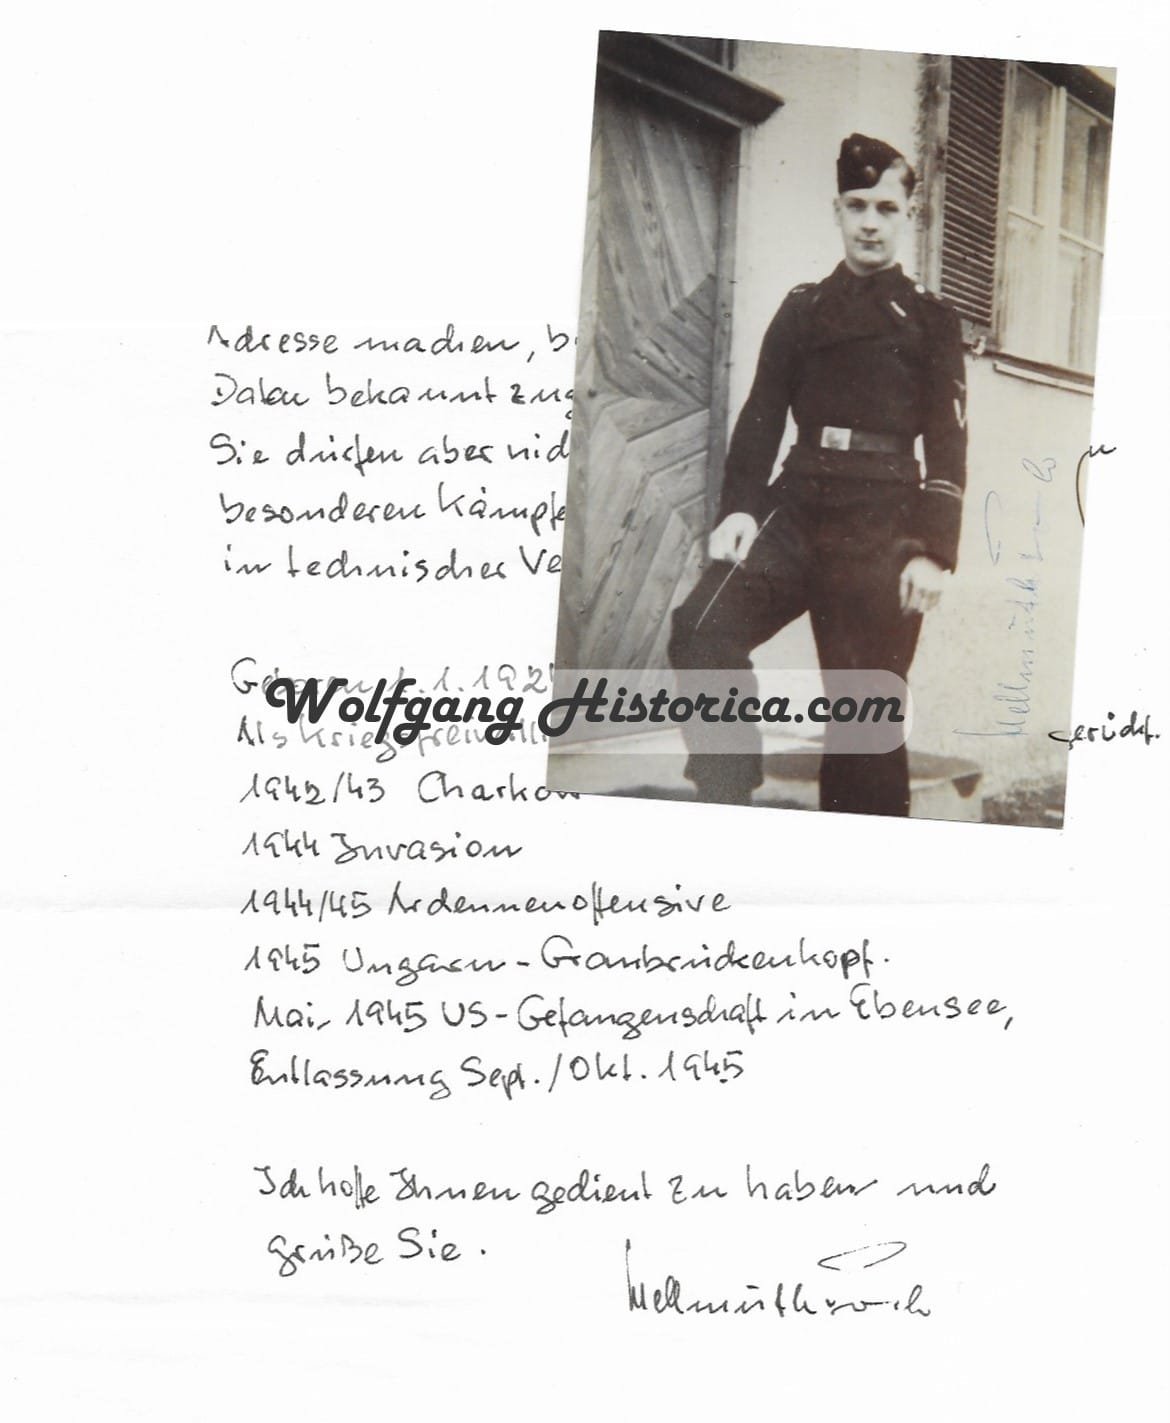 Adresse machen, b
Daten bekannt zug
Sie dürfen aber nich
besonderen Kämpfe
in technischer Ve
Geboren 1.1.192
Als Kriegsfreiwilli
gerückt.
Wolfgang Historica.com
1942/43 Charkow
1944 Invasion
1944/45 Ardennenoffensive
1945 Ungarn - Granbrückenkopf.
Mai 1945 US-Gefangenschaft in Ebensee,
Entlassung Sept./Okt. 1945
Ich hoffe Ihnen gedient zu haben und
grüße Sie.
Hellmuth
Hellmuth